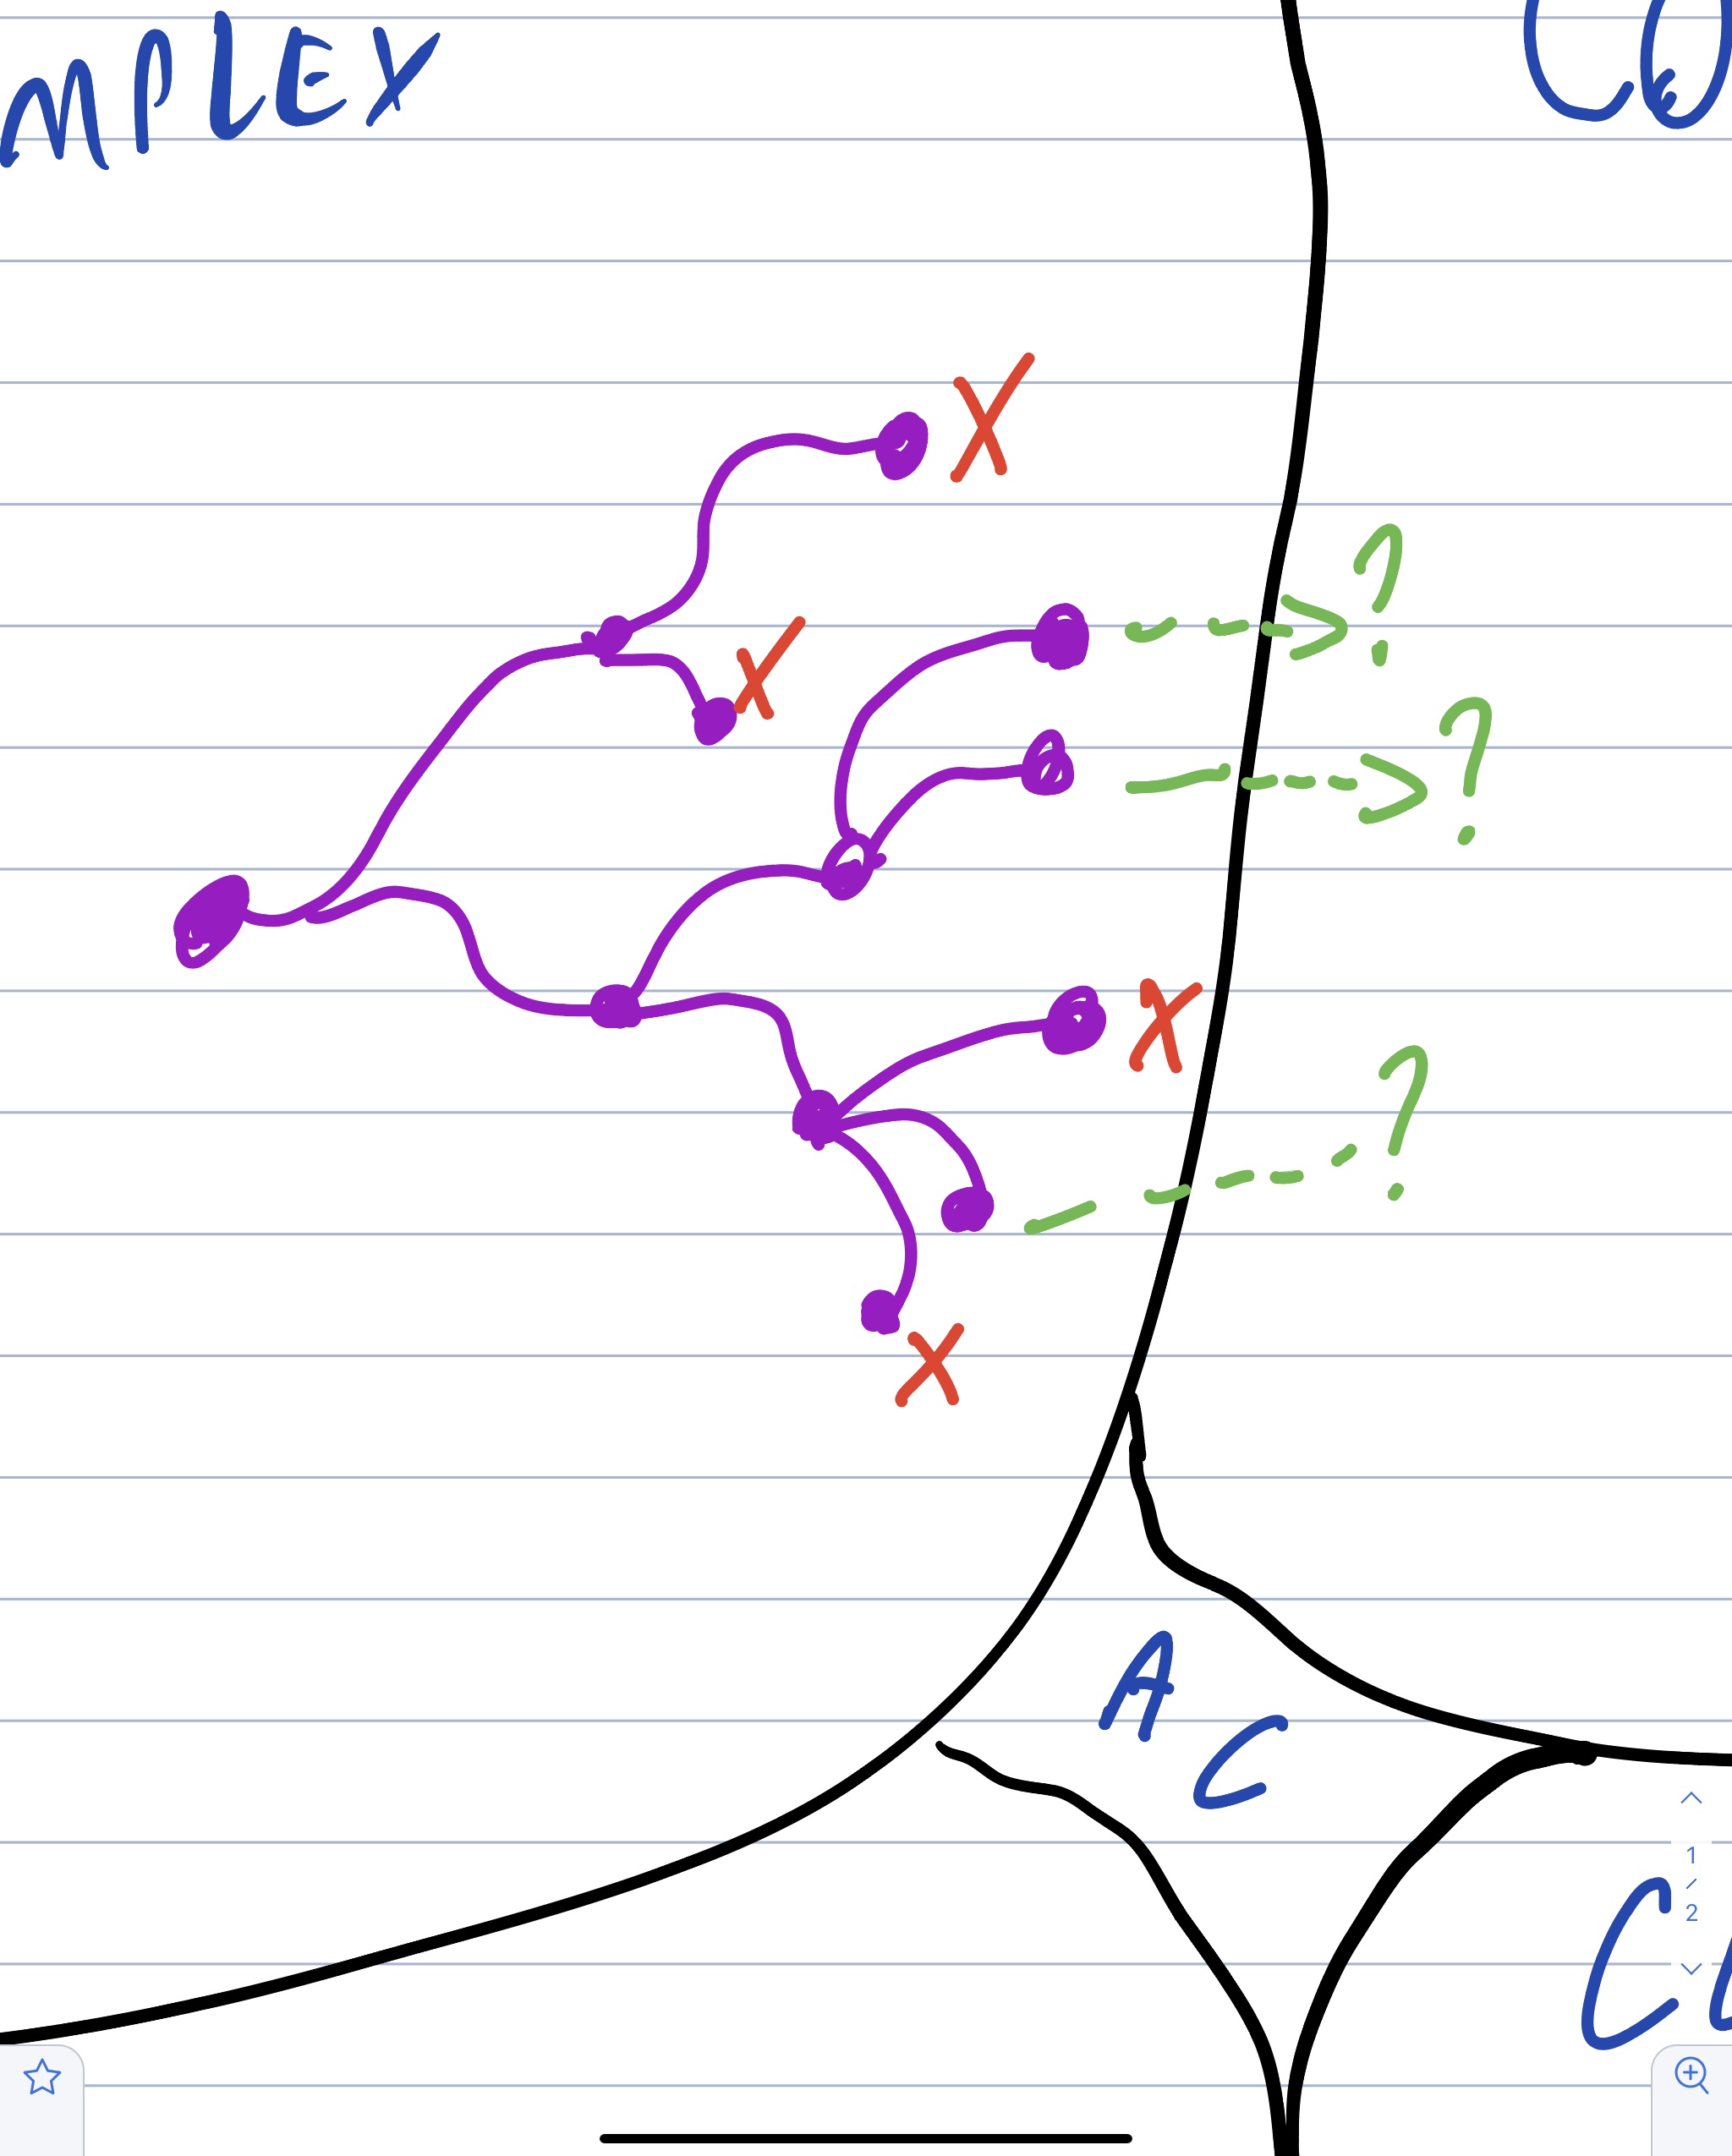 MPLEX
CO
X
?
X
?
X
?
X
A
C
1
/
2
C